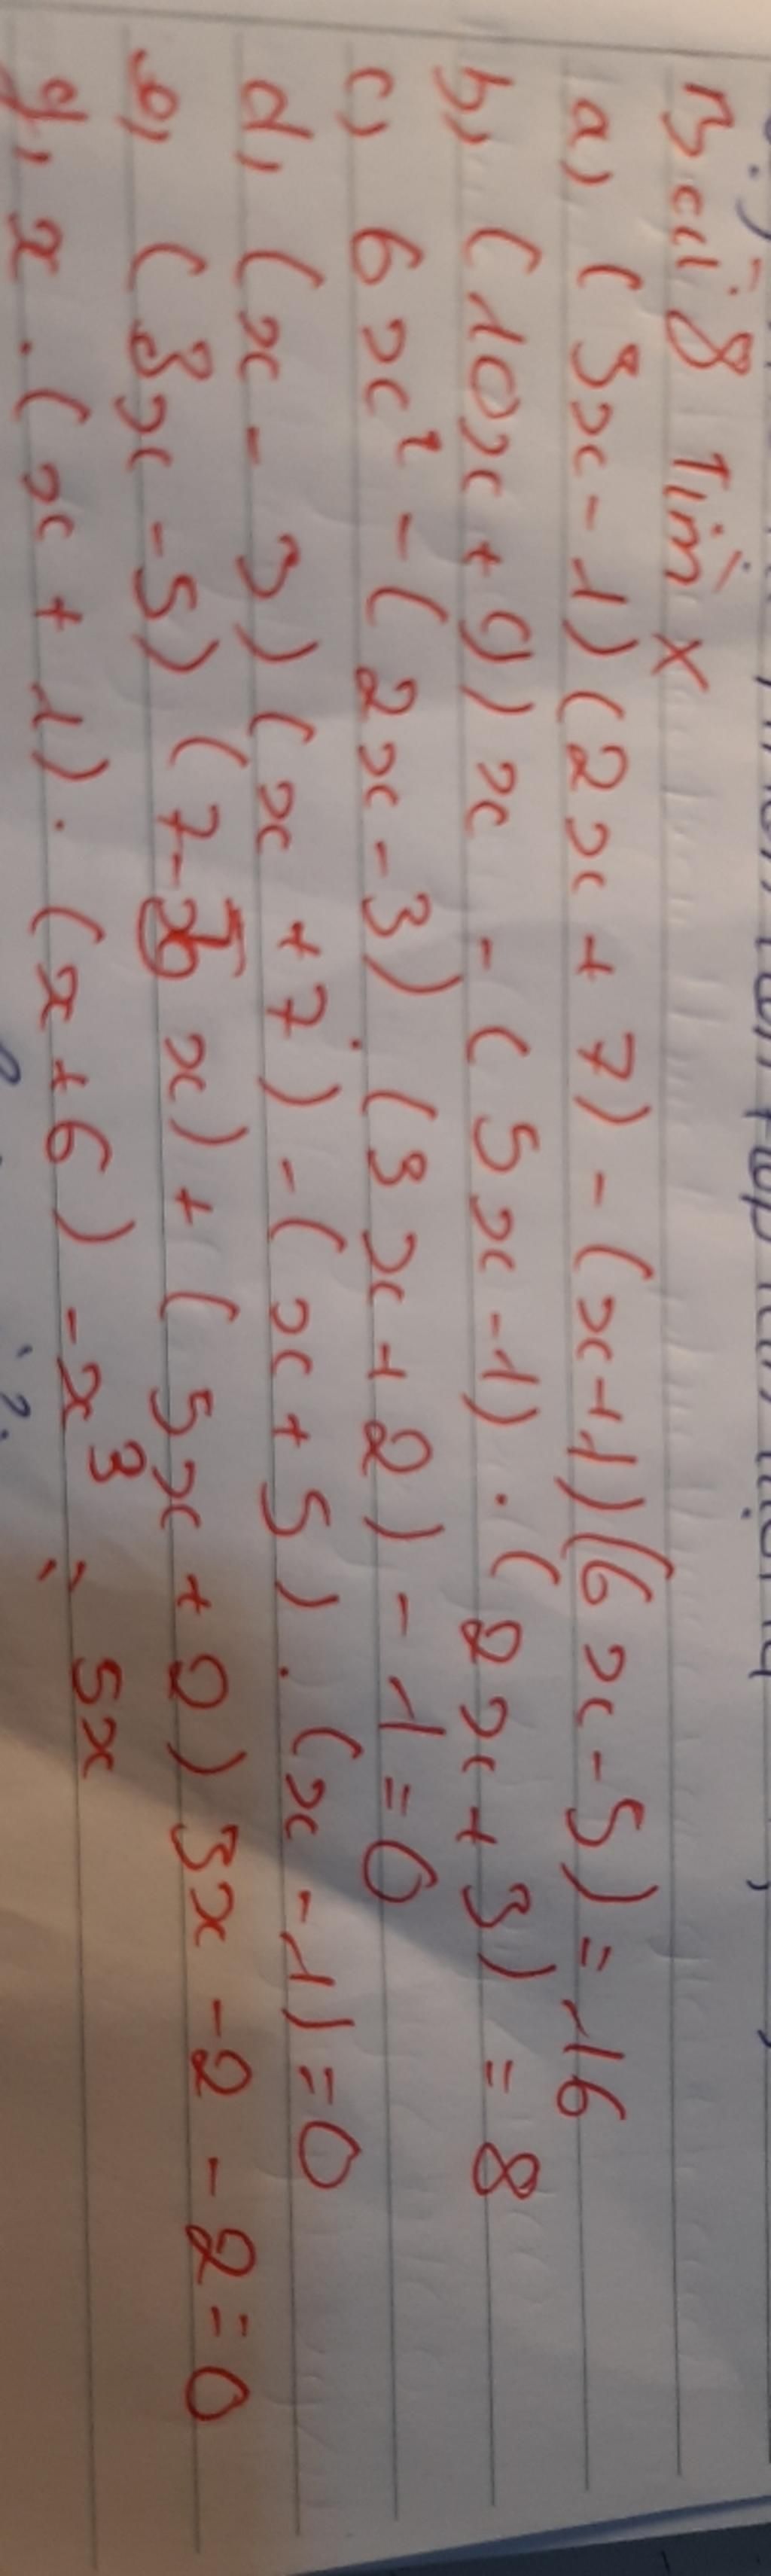 Bài 8 Tìm x
a) (3x-1)(2x+7)-(x+1)(6x-5)=16
b) (10x+9)x-(5x-1).(2x+3)=8
c) 6x²-(2x-3).(3x+2)-1=0
d) (x-3)(x+7)-(x+5).(x-1)=0
e) (3x-5)(7-5x)+(5x+2)3x-2-2=0
g) x.(x+1).(x+6)-x³=5x